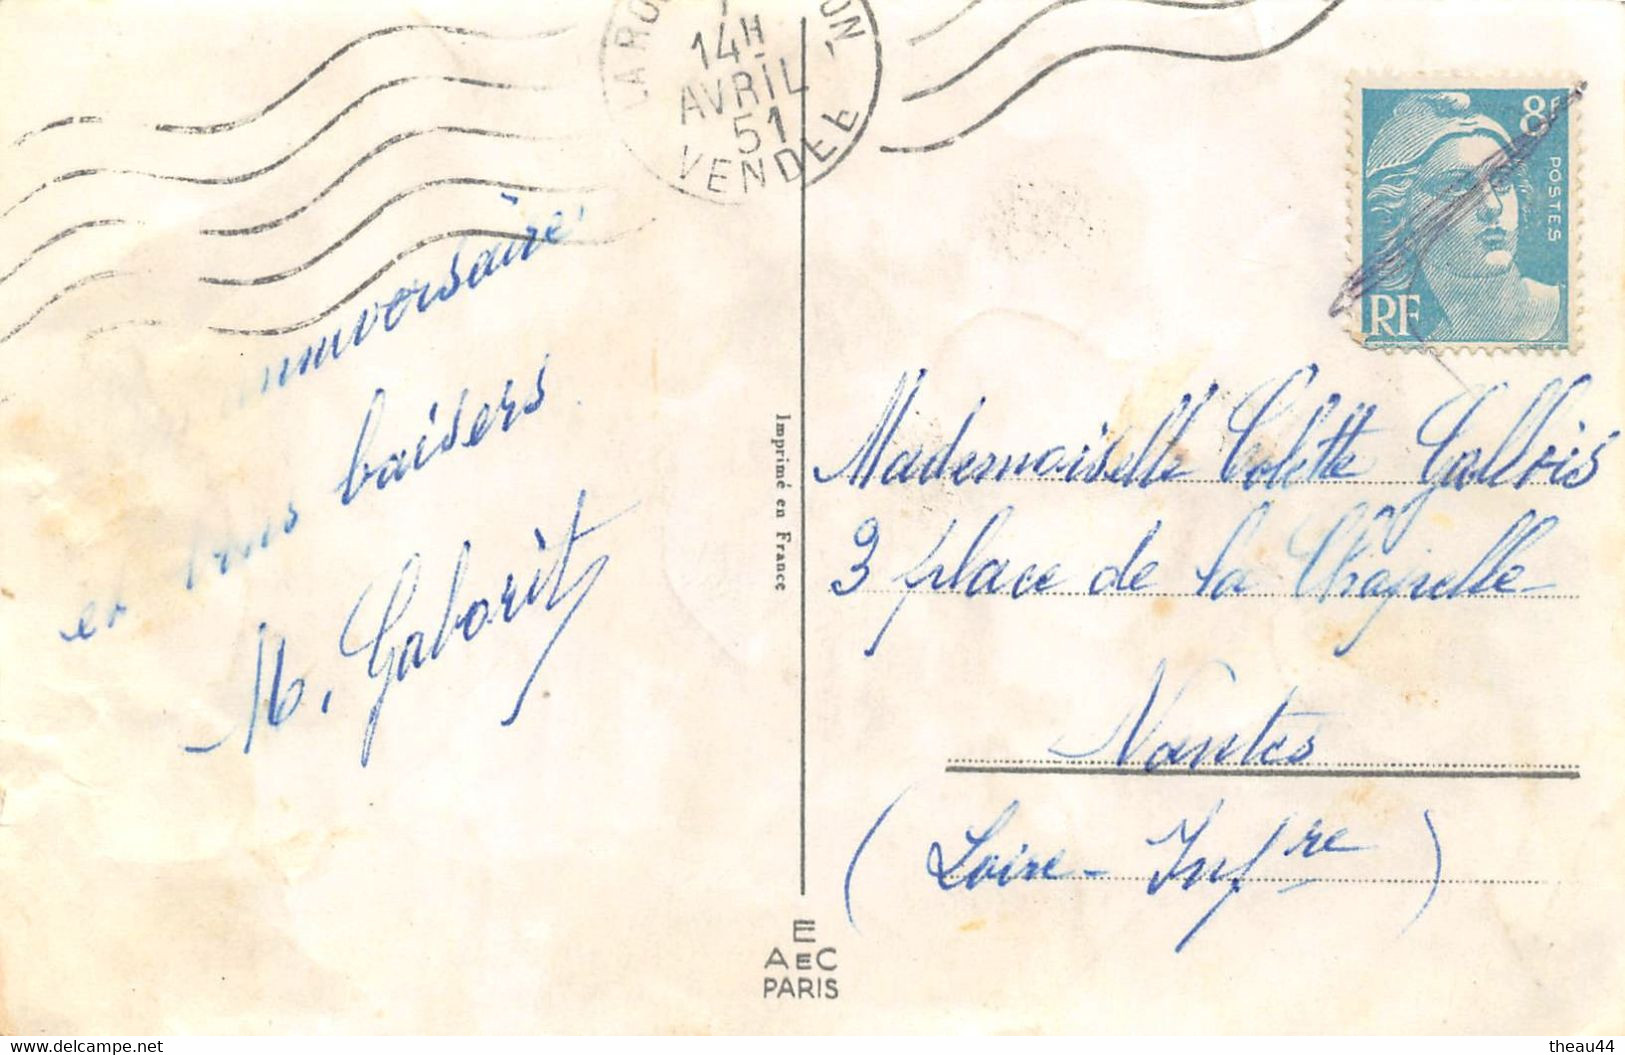 14H
AVRIL
51
VENDEE
8F
POSTES
RF
anniversaire
et bons baisers.
M. Gaborit
Imprimé en France
Mademoiselle Colette Gallois
3 place de la Chapelle
Nantes
(Loire-Infre)
E
AEC
PARIS
www.delcampe.net
theau44